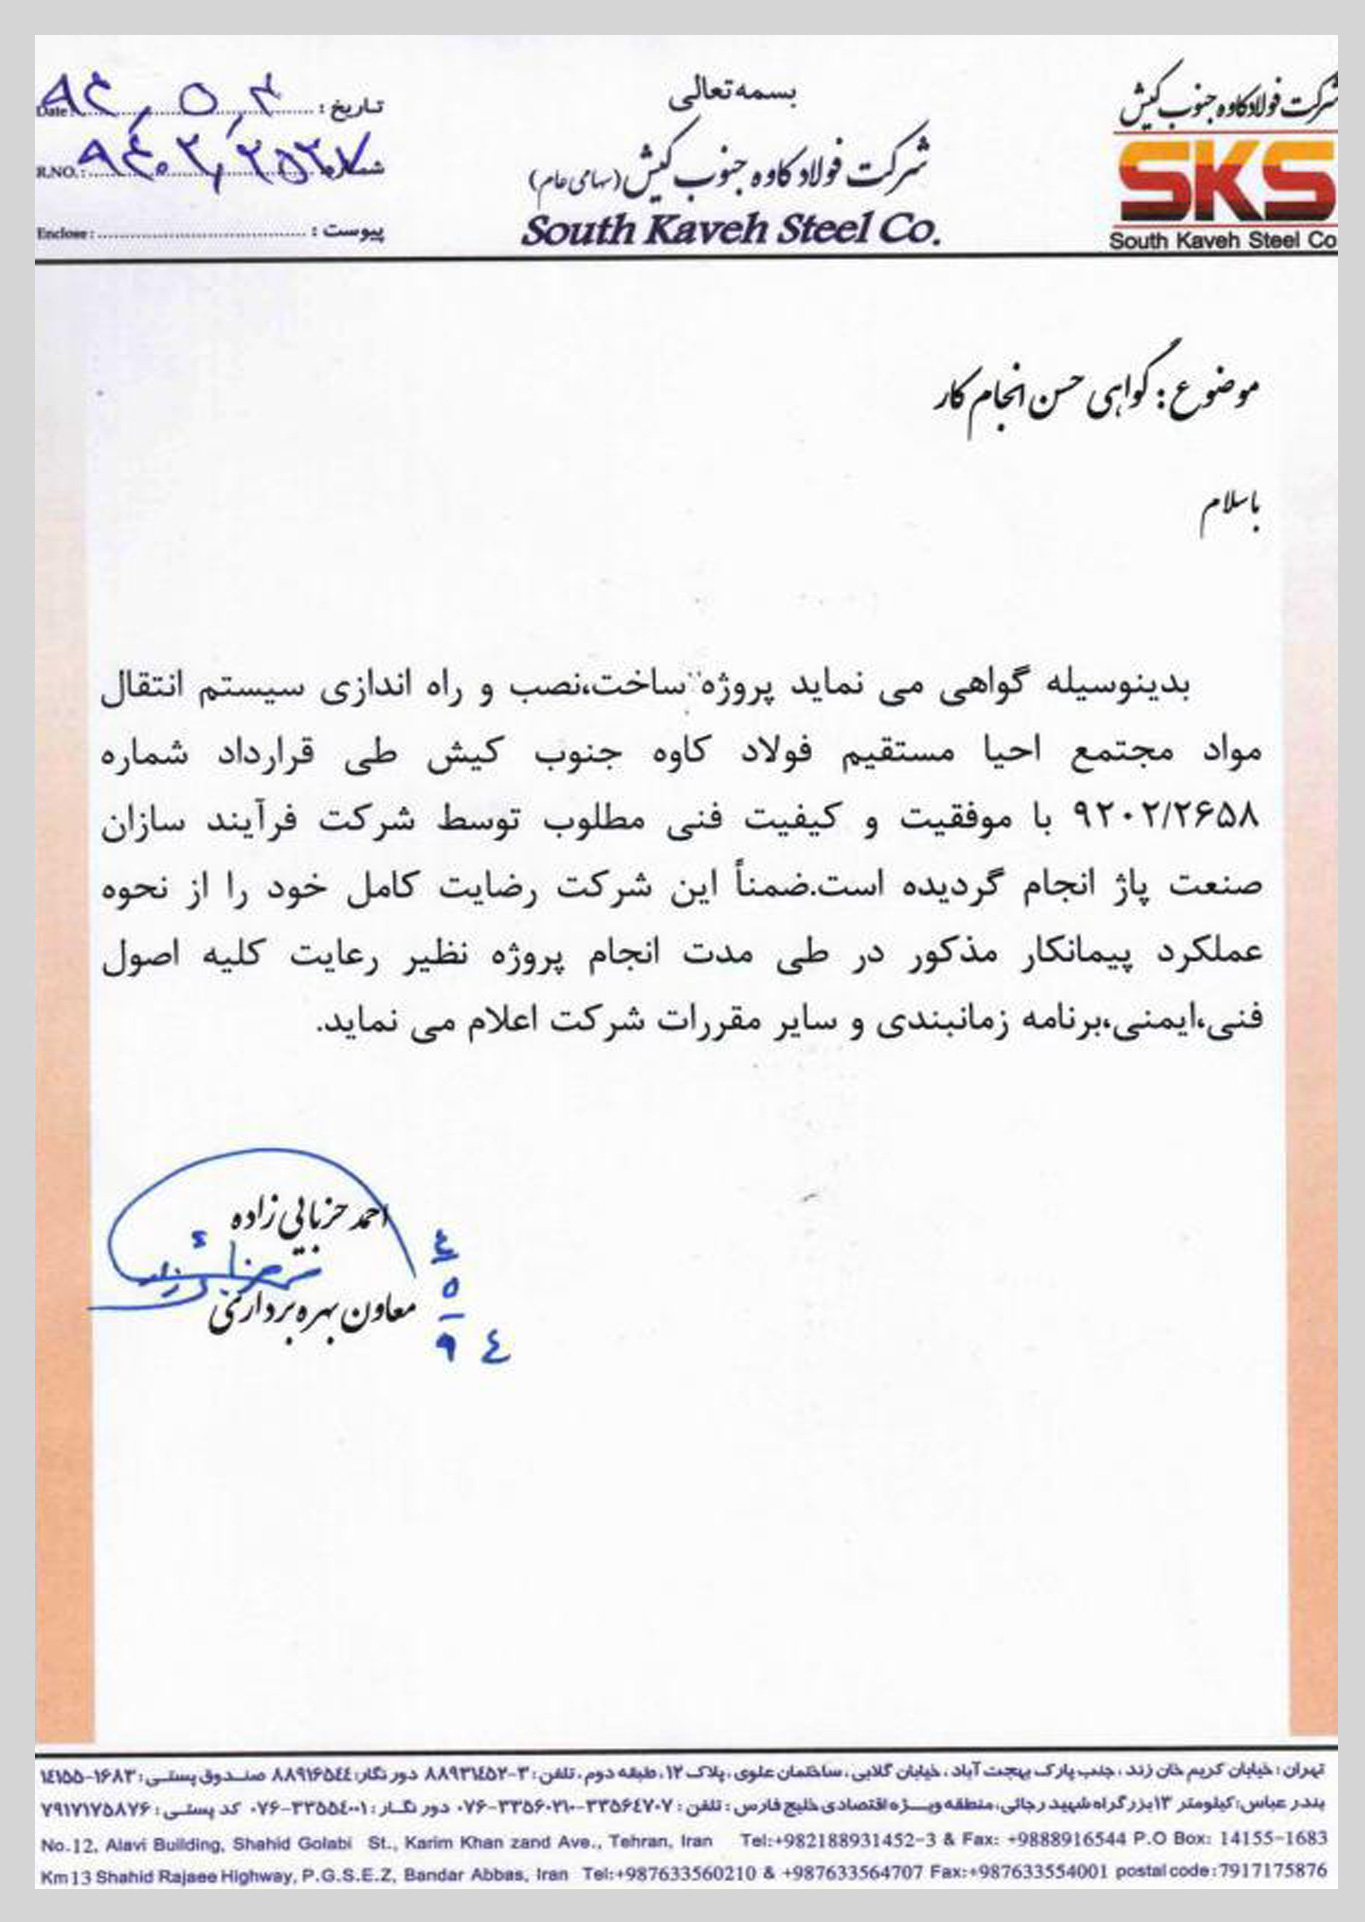 بسمه تعالی
شرکت فولاد کاوه جنوب کیش (سهامی عام)
South Kaveh Steel Co.
شرکت فولاد کاوه جنوب کیش
SKS
South Kaveh Steel Co
تاریخ : Date :
شماره R.NO. :
پیوست : Enclose :
موضوع : گواهی حسن انجام کار
باسلام
بدینوسیله گواهی می نماید پروژه ساخت،نصب و راه اندازی سیستم انتقال
مواد مجتمع احیا مستقیم فولاد کاوه جنوب کیش طی قرارداد شماره
۹۲۰۲/۲۶۵۸ با موفقیت و کیفیت فنی مطلوب توسط شرکت فرآیند سازان
صنعت پاژ انجام گردیده است.ضمناً این شرکت رضایت کامل خود را از نحوه
عملکرد پیمانکار مذکور در طی مدت انجام پروژه نظیر رعایت کلیه اصول
فنی،ایمنی،برنامه زمانبندی و سایر مقررات شرکت اعلام می نماید.
احمد خزبایی زاده
معاون بهره برداری
٤
٥
٩٤
تهران : خیابان کریم خان زند ، جنب پارک بهجت آباد ، خیابان گلابی ، ساختمان علوی ، پلاک ۱۲ ، طبقه دوم ، تلفن : ۳-۸۸۹۳۱٤۵۲ دور نگار: ۸۸۹۱۶۵٤٤ صندوق پستی : ۱۶۸۳-۱٤۱۵۵
بندر عباس: کیلومتر ۱۳ بزرگراه شهید رجائی، منطقه ویـژه اقتصادی خلیج فارس : تلفن : ۳۳۵۶٤۷۰۷-۳۳۵۶۰۲۱۰-۰۷۶ دور نگـار : ۳۳۵۵٤۰۰۱-۰۷۶ کد پستی : ۷۹۱۷۱۷۵۸۷۶
No.12, Alavi Building, Shahid Golabi St., Karim Khan zand Ave., Tehran, Iran Tel:+982188931452-3 & Fax: +9888916544 P.O Box: 14155-1683
Km13 Shahid Rajaee Highway, P.G.S.E.Z, Bandar Abbas, Iran Tel:+987633560210 & +987633564707 Fax:+987633554001 postal code:7917175876